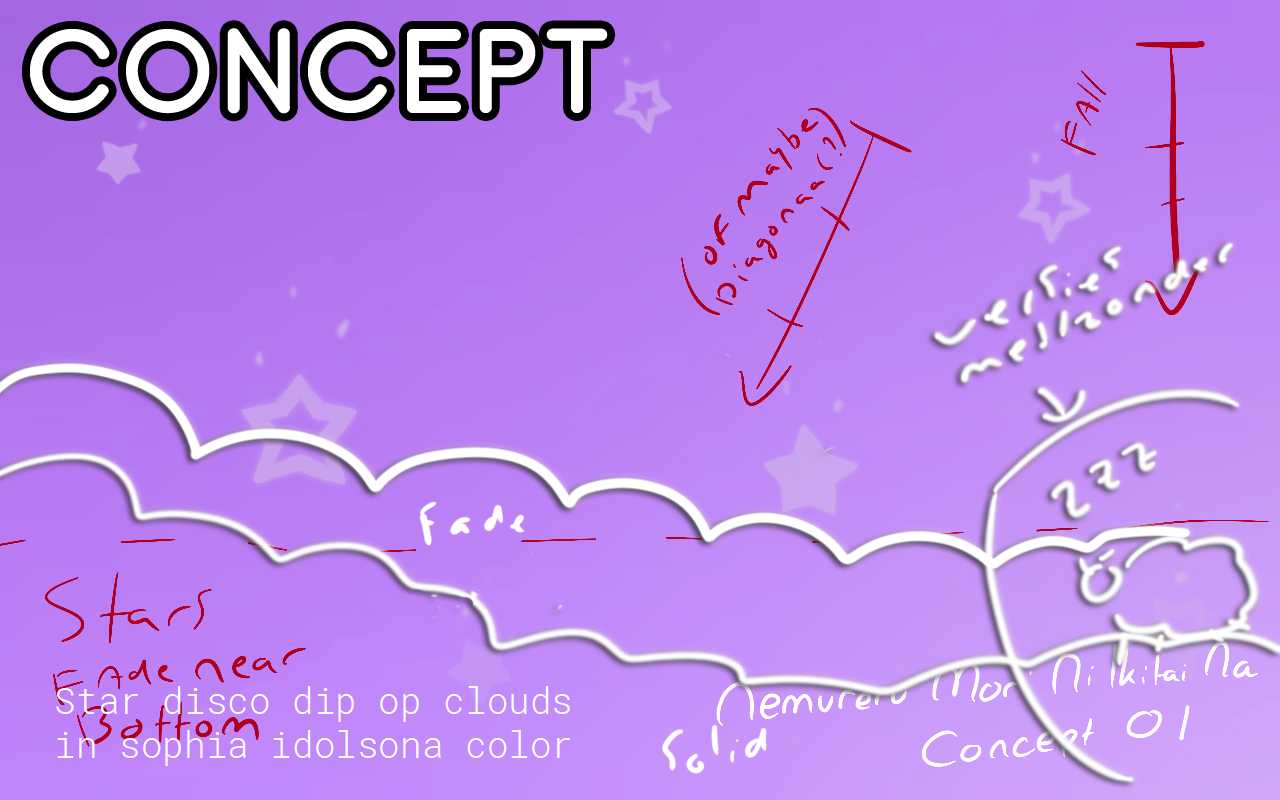 CONCEPT
FAll
(or maybe
Diagonaa(?)
mellzonder
zzz
Fade
Stars
Fade near
Bottom
Star disco dip op clouds
in sophia idolsona color
Nemureru Mori Ni Ikitai Na
Concept 01
Solid